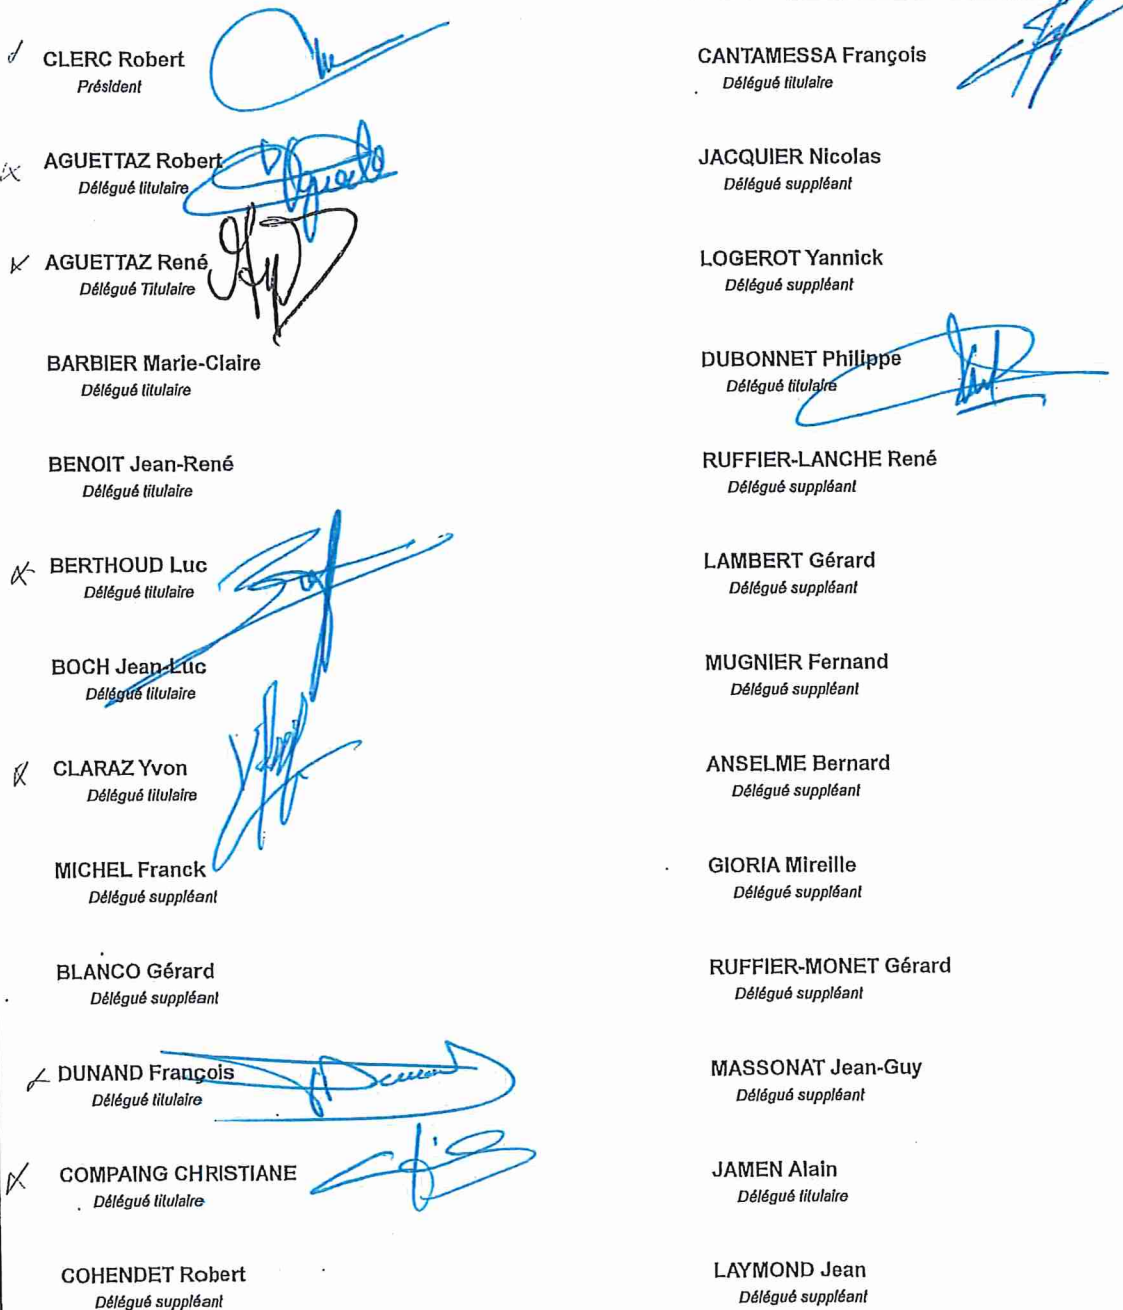 CLERC Robert
Président
AGUETTAZ Robert
Délégué titulaire
AGUETTAZ René
Délégué Titulaire
BARBIER Marie-Claire
Délégué titulaire
BENOIT Jean-René
Délégué titulaire
BERTHOUD Luc
Délégué titulaire
BOCH Jean-Luc
Délégué titulaire
CLARAZ Yvon
Délégué titulaire
MICHEL Franck
Délégué suppléant
BLANCO Gérard
Délégué suppléant
DUNAND François
Délégué titulaire
COMPAING CHRISTIANE
Délégué titulaire
COHENDET Robert
Délégué suppléant
CANTAMESSA François
Délégué titulaire
JACQUIER Nicolas
Délégué suppléant
LOGEROT Yannick
Délégué suppléant
DUBONNET Philippe
Délégué titulaire
RUFFIER-LANCHE René
Délégué suppléant
LAMBERT Gérard
Délégué suppléant
MUGNIER Fernand
Délégué suppléant
ANSELME Bernard
Délégué suppléant
GIORIA Mireille
Délégué suppléant
RUFFIER-MONET Gérard
Délégué suppléant
MASSONAT Jean-Guy
Délégué suppléant
JAMEN Alain
Délégué titulaire
LAYMOND Jean
Délégué suppléant